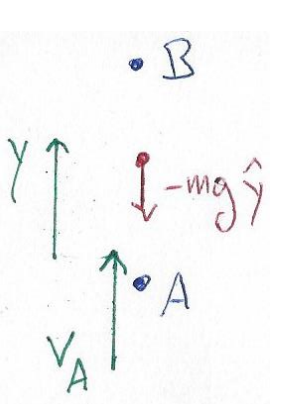 B
Y
-mg ŷ
A
V_A